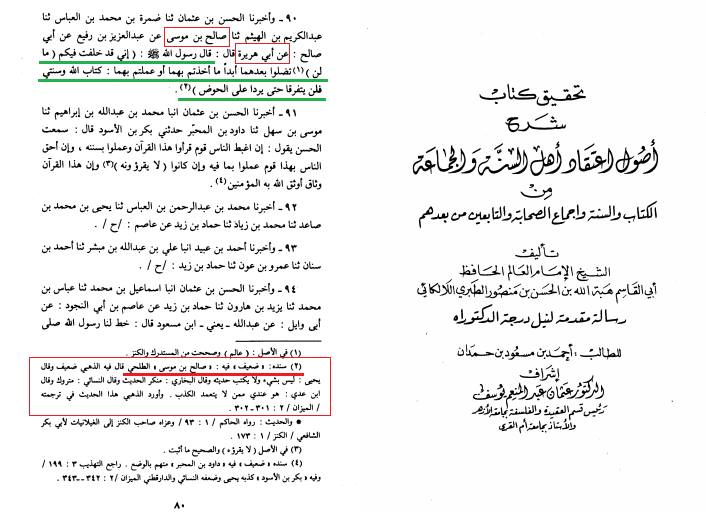 ٩٠ ـ وأخبرنا الحسن بن عثمان ثنا ضمرة بن محمد بن العباس ثنا
عبدالكريم بن الهيثم ثنا صالح بن موسى عن عبدالعزيز بن رفيع عن أبي
صالح : عن أبي هريرة قال : قال رسول الله ﷺ : ( إني قد خلفت فيكم ( ما
لن )(١) تضلوا بعدهما أبداً ما أخذتم بهما أو عملتم بهما : كتاب الله وسنتي
فلن يتفرقا حتى يردا على الحوض )(٢) .
٩١ ـ أخبرنا الحسن بن عثمان انبا محمد بن عبدالله بن إبراهيم ثنا
موسى بن سهل ثنا داود بن المحبّر حدثني بكر بن الأسود قال : سمعت
الحسن يقول : إن اغبط الناس قوم قرأوا هذا القرآن وعملوا بسننه ، وإن أحق
الناس بهذا قوم عملوا بما فيه وإن كانوا ( لا يقرؤ ونه )(٣) وإن هذا القرآن
وثاق أوثق الله به المؤمنين(٤) .
٩٢ ـ أخبرنا محمد بن عبدالرحمن بن العباس ثنا يحيى بن محمد بن
صاعد ثنا محمد بن زياد ثنا حماد بن زيد عن عاصم : /ح / .
٩٣ ـ وأخبرنا أحمد بن عبيد انبا علي بن عبدالله بن مبشر ثنا أحمد بن
سنان ثنا عمرو بن عون ثنا حماد بن زيد : /ح / .
٩٤ ـ وأخبرنا الحسن بن عثمان انبا اسماعيل بن محمد ثنا عباس بن
محمد ثنا يزيد بن هارون ثنا حماد بن زيد عن عاصم بن أبي النجود : عن
أبي وايل : عن عبدالله ـ يعني ـ ابن مسعود قال : خط لنا رسول الله صلى
(١) في الأصل : ( عالم ) وصححت من المستدرك والكنز .
(٢) سنده : « ضعيف » فيه : « صالح بن موسى » الطلحي قال فيه الذهبي ضعيف وقال
يحيى : ليس بشيء ولا يكتب حديثه وقال البخاري : منكر الحديث وقال النسائي : متروك وقال
ابن عدي : هو عندي ممن لا يتعمد الكذب . وأورد الذهبي هذا الحديث في ترجمته
/ الميزان / ٢ : ٣٠١ ـ ٣٠٢ .
● والحديث : رواه الحاكم / ١ : ٩٣ / وعزاه صاحب الكنز إلى الغيلانيات لأبي بكر
الشافعي / الكنز / ١ : ١٧٣ .
(٣) في الأصل ( لا يقرؤه ) والصحيح ما أثبت .
(٤) سنده « ضعيف » فيه « داود بن المحبر » متهم بالوضع . راجع التهذيب ٣ : ١٩٩ /
وفيه « بكر بن الأسود » كذبه يحيى وضعفه النسائي والدارقطني الميزان /٢ : ٣٤٢ ــ ٣٤٣ .
٨٠
تحقيق كتاب
شرح
أصول اعتقاد أهل السنة والجماعة
من
الكتاب والسنة واجماع الصحابة والتابعين من بعدهم
تأليف
الشيخ الإمام العالم الحافظ
أبي القاسم هبة الله بن الحسن بن منصور الطبري اللالكائي
رسالة مقدمة لنيل درجة الدكتوراه
للطالب : أحمد بن مسعود بن حمدان
إشراف
الدكتور عثمان عبد المنعم يوسف
رئيس قسم العقيدة والفلسفة بجامعة الأزهر
والأستاذ بجامعة أم القرى